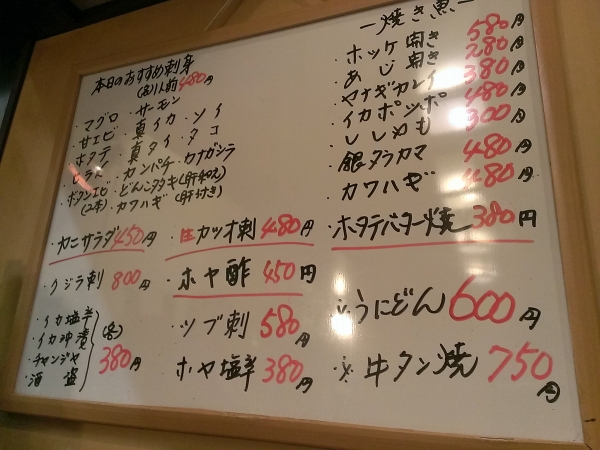 本日のおすすめ刺身
(各)1人前480円
・マグロ・サーモン
・甘エビ・真イカ・ソイ
・ホタテ・真タイ・タコ
・ヒラメ・カンパチ・カナガシラ
・ボタンエビ・どんこタタキ(肝和え)
(2本)・カワハギ(肝付き)
・カニサラダ450円
・クジラ刺800円
・イカ塩辛
・イカ沖漬
・チャンジャ
・酒盗
(各)
380円
・生カツオ刺480円
・ホヤ酢450円
・ツブ刺580円
・ホヤ塩辛380円
ー焼き魚ー
・ホッケ開き580円
・あじ開き280円
・ヤナギカレイ380円
・イカポッポ480円
・ししゃも300円
・銀タラカマ480円
・カワハギ480円
・ホタテバター焼380円
※うにどん600円
※牛タン焼750円